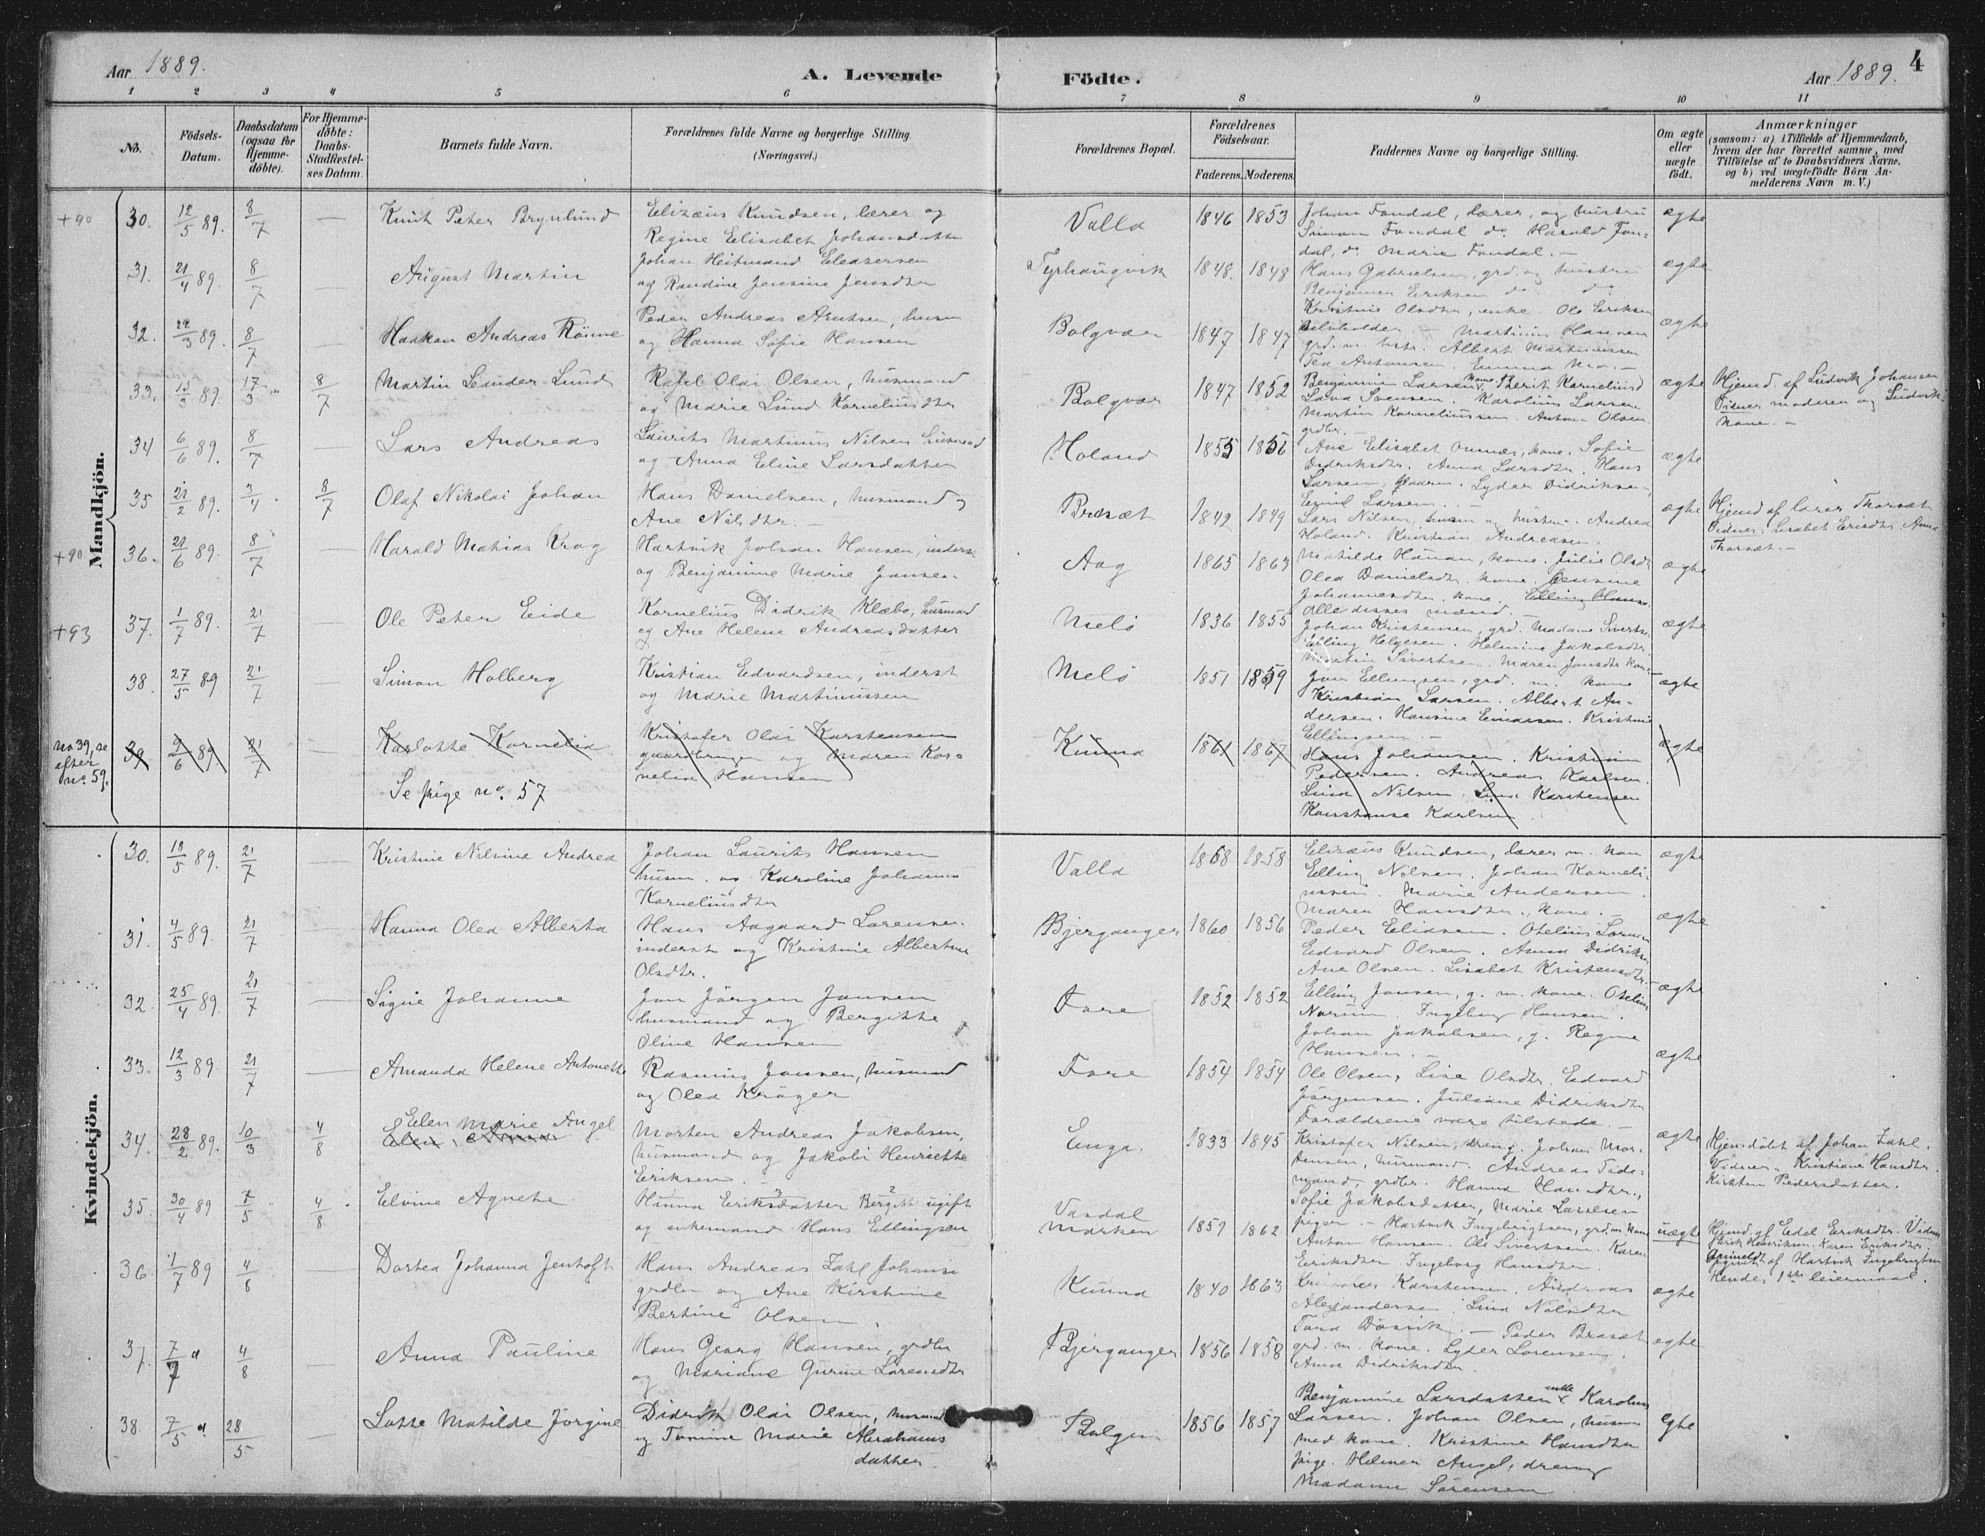 Aar 1889.
A. Levende
Födte.
Aar 1889.
4
1 2 3 4 5 6 7 8 9 10 11
No.
Födsels-
Datum.
Daabsdatum
(ogsaa for
Hjemme-
døbte).
For Hjemme-
døbte:
Daabs-
Stadfæstel-
ses Datum.
Barnets fulde Navn.
Forældrenes fulde Navne og borgerlige Stilling.
(Næringsvei.)
Forældrenes Bopæl.
Forældrenes
Födselsaar.
Faderens. Moderens.
Faddernes Navne og borgerlige Stilling.
Om ægte
eller
uægte
födt.
Anmærkninger
(saasom: a) i Tilfælde af Hjemmedaab,
hvem der har forrettet samme, med
Tilføielse af to Daabsvidners Navne,
og b) ved uægtefödte Börn An-
melderens Navn m. V.)
Mandkjön.
+90 30. 12/5 89. 8/7 — Knut Peter Brynlund
Elizæus Knudsen, lærer og
Regine Elisabet Johansdatter
Valla 1846 1853
Johan Fondal, lærer, og hustru
Simon Fondal do. Harald Fon-
dal, do. Marie Fondal. —
ægte
31. 21/4 89. 8/7 — August Martin
Johan Heitmand Eleasersen
og Randine Jensine Jensdtr
Tyrhaugvik 1848. 1848
Hans Gabrielsen, grd. og hustru
Benjamin Eriksen do. do.
Kristine Olsdtr, enke. Ole Eriksen
ægte
32. 22/3 89. 8/7 — Haakon Andreas Rönne
Peder Andreas Arntsen, husm
og Hanna Sofie Hansen
Bolgvær 1847 1847
Martinus Hansen
grd. m. hstr. Albert Martinussen
ægte
33. 13/3 89. 17/3 8/7 Martin Leander Lund
Rafel Olai Olsen, husmand
og Marie Lund Kornelius dtr
Bolgvær 1847 1852
Benjamin Larsen kone. Berit Kornelius d
Lava Svensen. Karolius Larsen
Martin Korneliussen. Anton Olsen
grdbr. —
ægte
Hjemd. af Ludvik Johansen
Vidner moderen og Ludviks
kone. —
34 6/6 89. 8/7 — Lars Andreas
Laurits Martinus Nilsen husmand
og Anna Eline Larsdatter
Holand 1855 1856
Ane Elisabet Ornnæs, kone. Sofie
Didriksdtr. Anna Larsdtr. Hans
Larsen, Lyder Didriksen,
Emil Larsen. —
ægte
35 21/2 89. 3/4 8/7 Olaf Nikolai Johan
Hans Danielsen, husmand og
Ane Nilsdtr. —
Brasæt 1842 1849
Lars Nilsen, husm og hustru. Andrea
Holand. Kristian Andreasen.
ægte
Hjemd af lærer Thorsæt
Vidner: Lisabet Eriksdtr, Anna
Thorsæt. —
+90 36. 21/6 89. 8/7 — Harald Mathias Krog
Hartvik Johan Hansen, inderst
og Benjamine Marie Jansen.
Aag 1865 1863
Mathilde Hansen, kone. Julie Olsdtr
Olea Danielsdtr. kone. Jensine
Johannesdtr. kone. Elling Hanss.
alle disses mænd. —
ægte
+93 37. 1/7 89. 21/7 — Ole Peter Eide
Kornelius Didrik Klæbo, husmand
og Ane Helene Andreasdatter
Melö 1836 1855
Johan Kristensen, grd. Madame Sivertsen
Elling Helgesen. Helmine Jakobsdtr.
Martin Sivertsen. Maren Jonsdtr kone —
ægte
38. 27/5 89 21/7 — Simon Holberg
Kristian Edvardsen, inderst
og Marie Martinussen
Melö 1851 1859
Jon Ellingsen, grd. m. kone
Kristian Larsen. Albert An-
dersen. Hansine Einarsen. Kristine
Ellingsen. —
ægte
no 39, se
efter
no. 59.
39 9/6 89 21/7 — Karlotte Kornelia
Kristofer Olai Karstensen
gaardbruger og Maren Kor-
nelia Hansen
Kunna 1861 1867
Hans Johansen. Kristian
Pedersen. Andreas Karlsen.
Lina Nilsen. Lina Karstensen
Konstanse Karlsen
ægte
Se pige no. 57
Kvindekjön.
30. 18/5 89. 21/7 — Kristine Nilsine Andrea
Johan Laurits Hansen
husm. og Karoline Johanna
Korneliusdtr
Valla 1868 1858
Elizæus Knudsen, lærer m. kone
Elling Nilsen. Johan Korneli-
ussen. Marie Andersen
Maren Hansdtr., kone. —
ægte
31. 4/5 89. 21/7 — Hanna Olea Alberta
Hans Aagaard Lorensen
inderst og Kristine Albertine
Olsdtr.
Bjergangen 1860. 1856
Peder Eliasen. Otelius Larsen
Edvard Olsen. Anna Didriks.
Ane Olsen. Lisabet Kristensdtr. —
ægte
32. 25/4 89. 21/7 — Signe Johanne
Jon Jörgen Jonsen
husmand og Bergitte
Oline Hansen
Fore 1852 1852
Elling Jonsen, g. m. kone. Otelius
Norum. Ingeborg Hansen.
Johan Jakobsen, g. Regine
Hansen. —
ægte
33. 12/3 89 21/7 — Amanda Helene Antonette
Rasmus Jonsen, husmand
og Olea Kröger
Fore 1854 1854
Ole Olsen, Lise Olsdtr. Edvard
Jörgensen. Juliane Didriksdtr
Forældrene vare tilstede. —
ægte
34. 28/2 89. 10/3 4/8 Elen Marie Angel
Elen Anna
Morten Andreas Jakobsen,
husmand og Jakobi Henriette
Eriksen. —
Enga. 1833 1845
Kristofer Nilsen, dreng. Johan Mor-
tensen, husmand. Andreas Tide-
mand, grdbr. Hanna Hansdtr.,
Sofie Jakobsdatter, Marie Larsen
piger. —
ægte
Hjemdöbt af Johan Zahl.
Vidner: Kristiane Hansdtr.
Kirsten Pedersdatter.
35. 30/4 89 7/5 4/8 Elvine Agnete
Hanna Eriksdatter Bergitt ugift
og enkemand Hans Ellingsen
Vasdal
marken 1859 1862
Hartvik Ingebrigtsen, grd. m. kone
Anton Hansen. Ole Sivertsen. Karen
Eriksdtr. Ingeborg Hansdtr
uægte
Hjemd. af Edel Eriksdtr. Vidner:
Erik Henriksen. Karen Eriksdtr.
Anmeldt af Hartvik Ingebrigtsen
Hendes 1ste leiermaal.
36. 1/7 89 4/8 Dortea Johanna Jentoft
Hans Andreas Zahl Johansen
grdbr og Ane Kirstine
Bertine Olsen.
Kunna 1840 1863
Karstensen. Andreas
Alexandersen. Lina Nilsdtr
ægte
37. 7/7 " 4/8 — Anna Pauline
Hans Georg Hansen, grdbr
og Mariane Gurine Lorensdtr
Bjergangen 1856 1858
Peder Brasæt
grd. m. kone. Lyder Lorensen.
Anna Didriksdtr.
ægte
38. 7/5 " 28/5 — Lotte Matilde Jörgine
Didrik Olai Olsen, husmand
og Tomine Marie Abrahams
datter.
Bolgen 1856 1857
Benjamine Larsdatter enke. Karolius
Larsen. Johan Olsen, husm
med kone. Kristine Hansdtr
pige. Helmer Angel, dreng
Madame Sörensen
egte